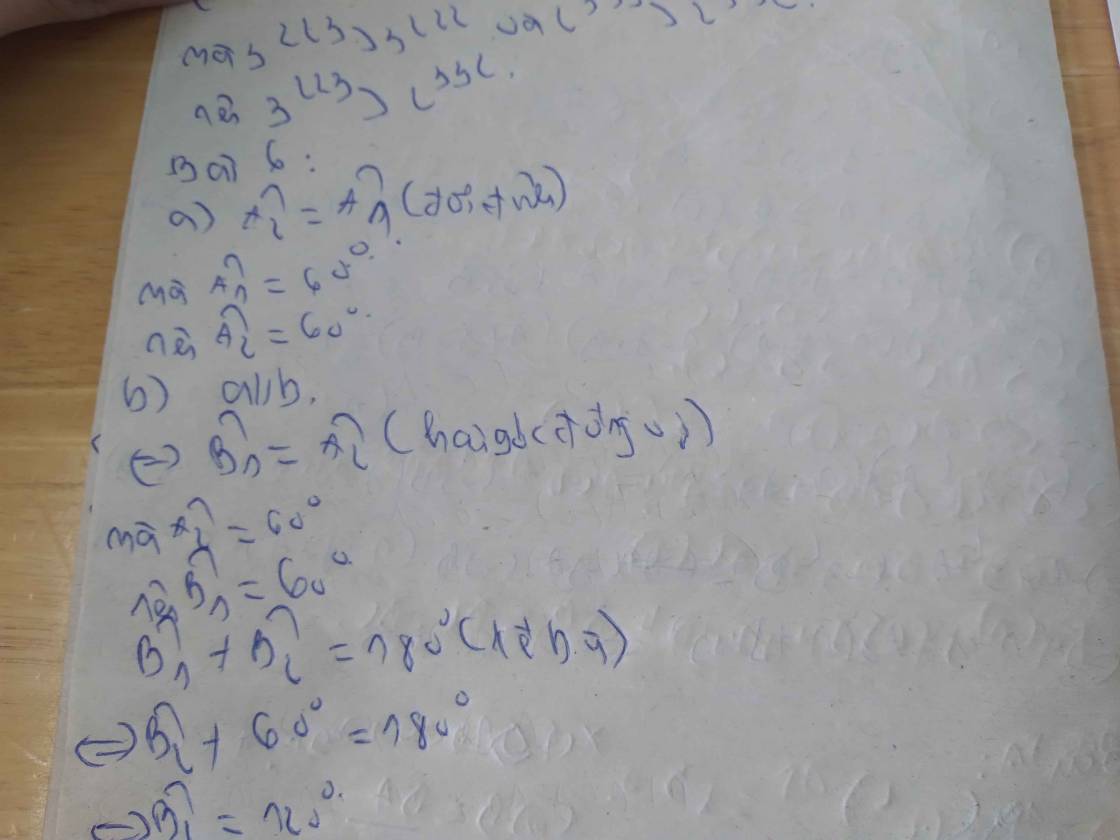 mà 3²²³ > 3²²² và 2³³³ > 2³³².
nên 3²²³ > 2³³².
Bài 6:
a) Â₂ = Â₁ (đối đỉnh)
mà Â₁ = 60°.
nên Â₂ = 60°.
b) a//b.
⇔ B̂₁ = Â₂ (hai góc đồng vị)
mà Â₂ = 60°
nên B̂₁ = 60°
B̂₁ + B̂₂ = 180° (kề bù)
⇔ B̂₂ + 60° = 180°
⇔ B̂₂ = 120°.